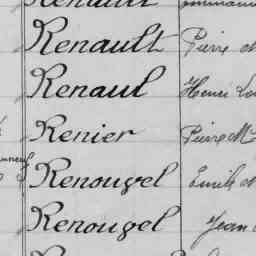 Renault Pierre M
Renaul Henri Lou
Renier Pierre M
Renougel Emile M
Renougel Jean